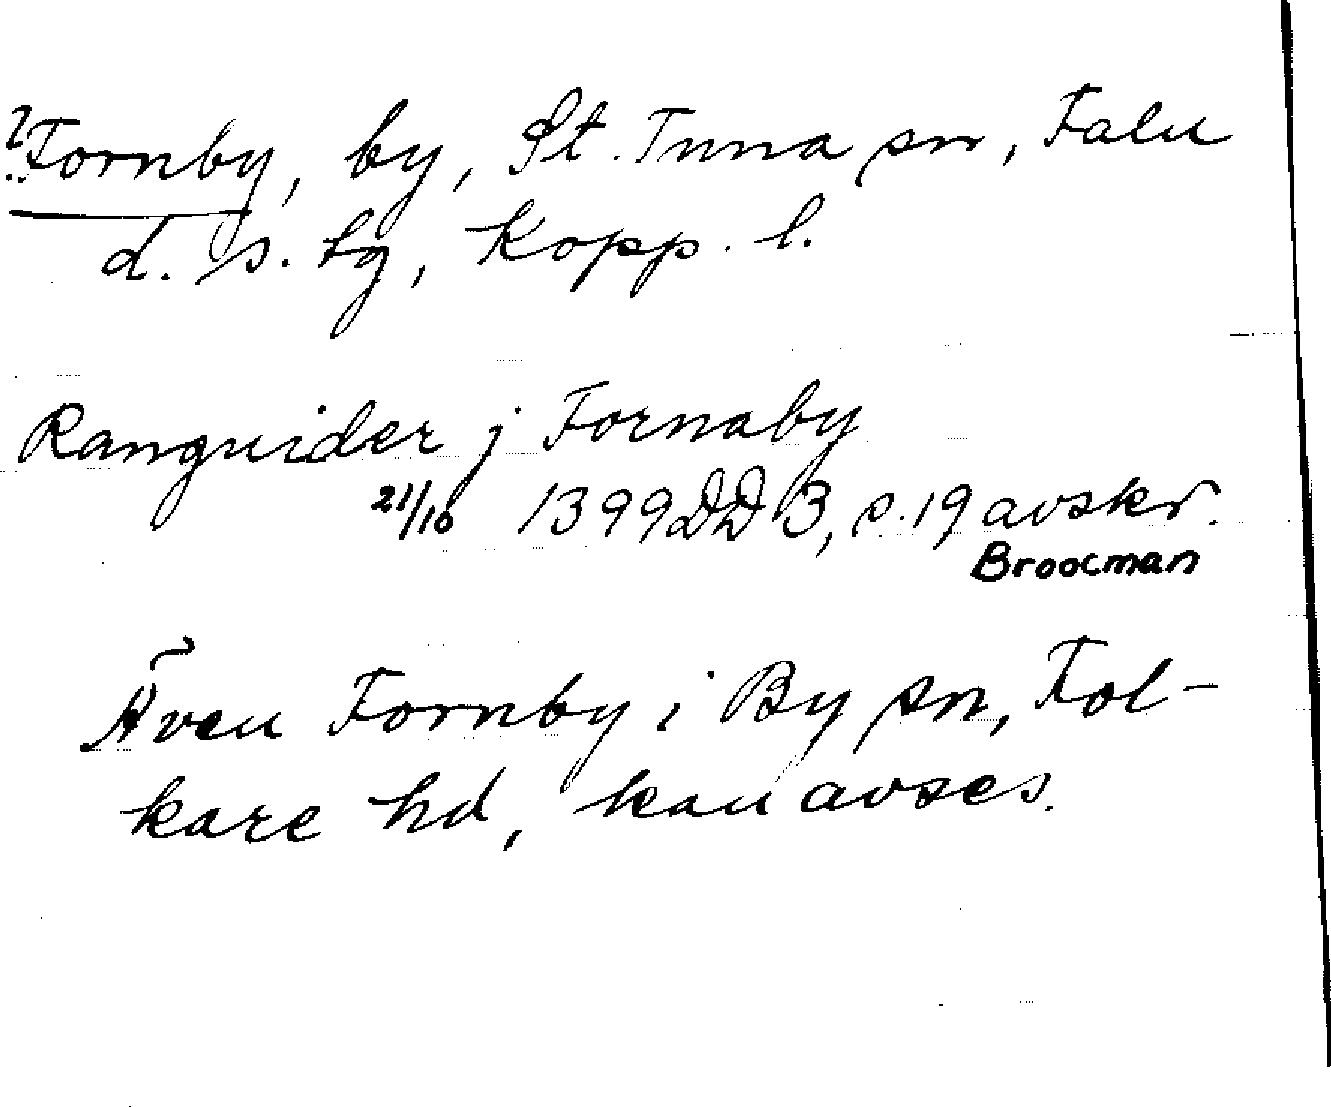 ? Fornby, by, St. Tuna sn, Falu
d. s. tg, Kopp. l.
Ranguider j Fornaby
21/10 1399 DD 3, s. 19 avskr.
Broocman
Även Fornby i By sn, Fol-
kare hd, kan avses.